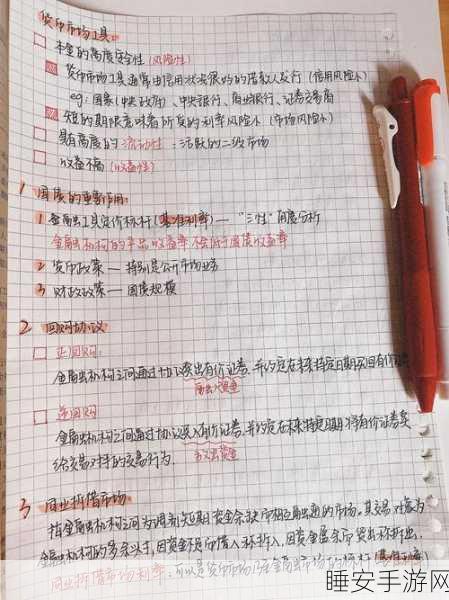 货币市场工具:
本金的高度安全性 (风险性)
货币市场工具通常由信用状况很好的借款人发行 (信用风险小)
eg: 国家(中央政府)、中央银行、商业银行、证券交易商
短的期限意味着所负的利率风险小 (市场风险小)
具有高度的流动性: 活跃的二级市场
收益不高 (收益性)
1 国债的重要作用
1 金融工具定价标杆 (基准利率) — "三性"角度分析
金融机构的产品收益率不低于国债收益率
2 货币政策 — 特别是公开市场业务
3 财政政策 — 国债规模
2 回购协议
正回购
金融机构之间通过协议卖出有价证券, 并约定在未来特定日期买回有价
融入资金
逆回购
金融机构之间通过协议买入有价证券, 并约定在未来特定日期将有价证券卖
给交易对手的交易行为.
融出资金
3 同业拆借市场
指金融机构之间为调剂短期资金余缺而相互融通的市场。其交易对象为
金融机构的多余头寸, 因资金不足而借入称拆入, 因资金盈余而贷出称拆出,
同业拆借市场利率, 可以是货币市场乃至金融市场的
睡安手游网